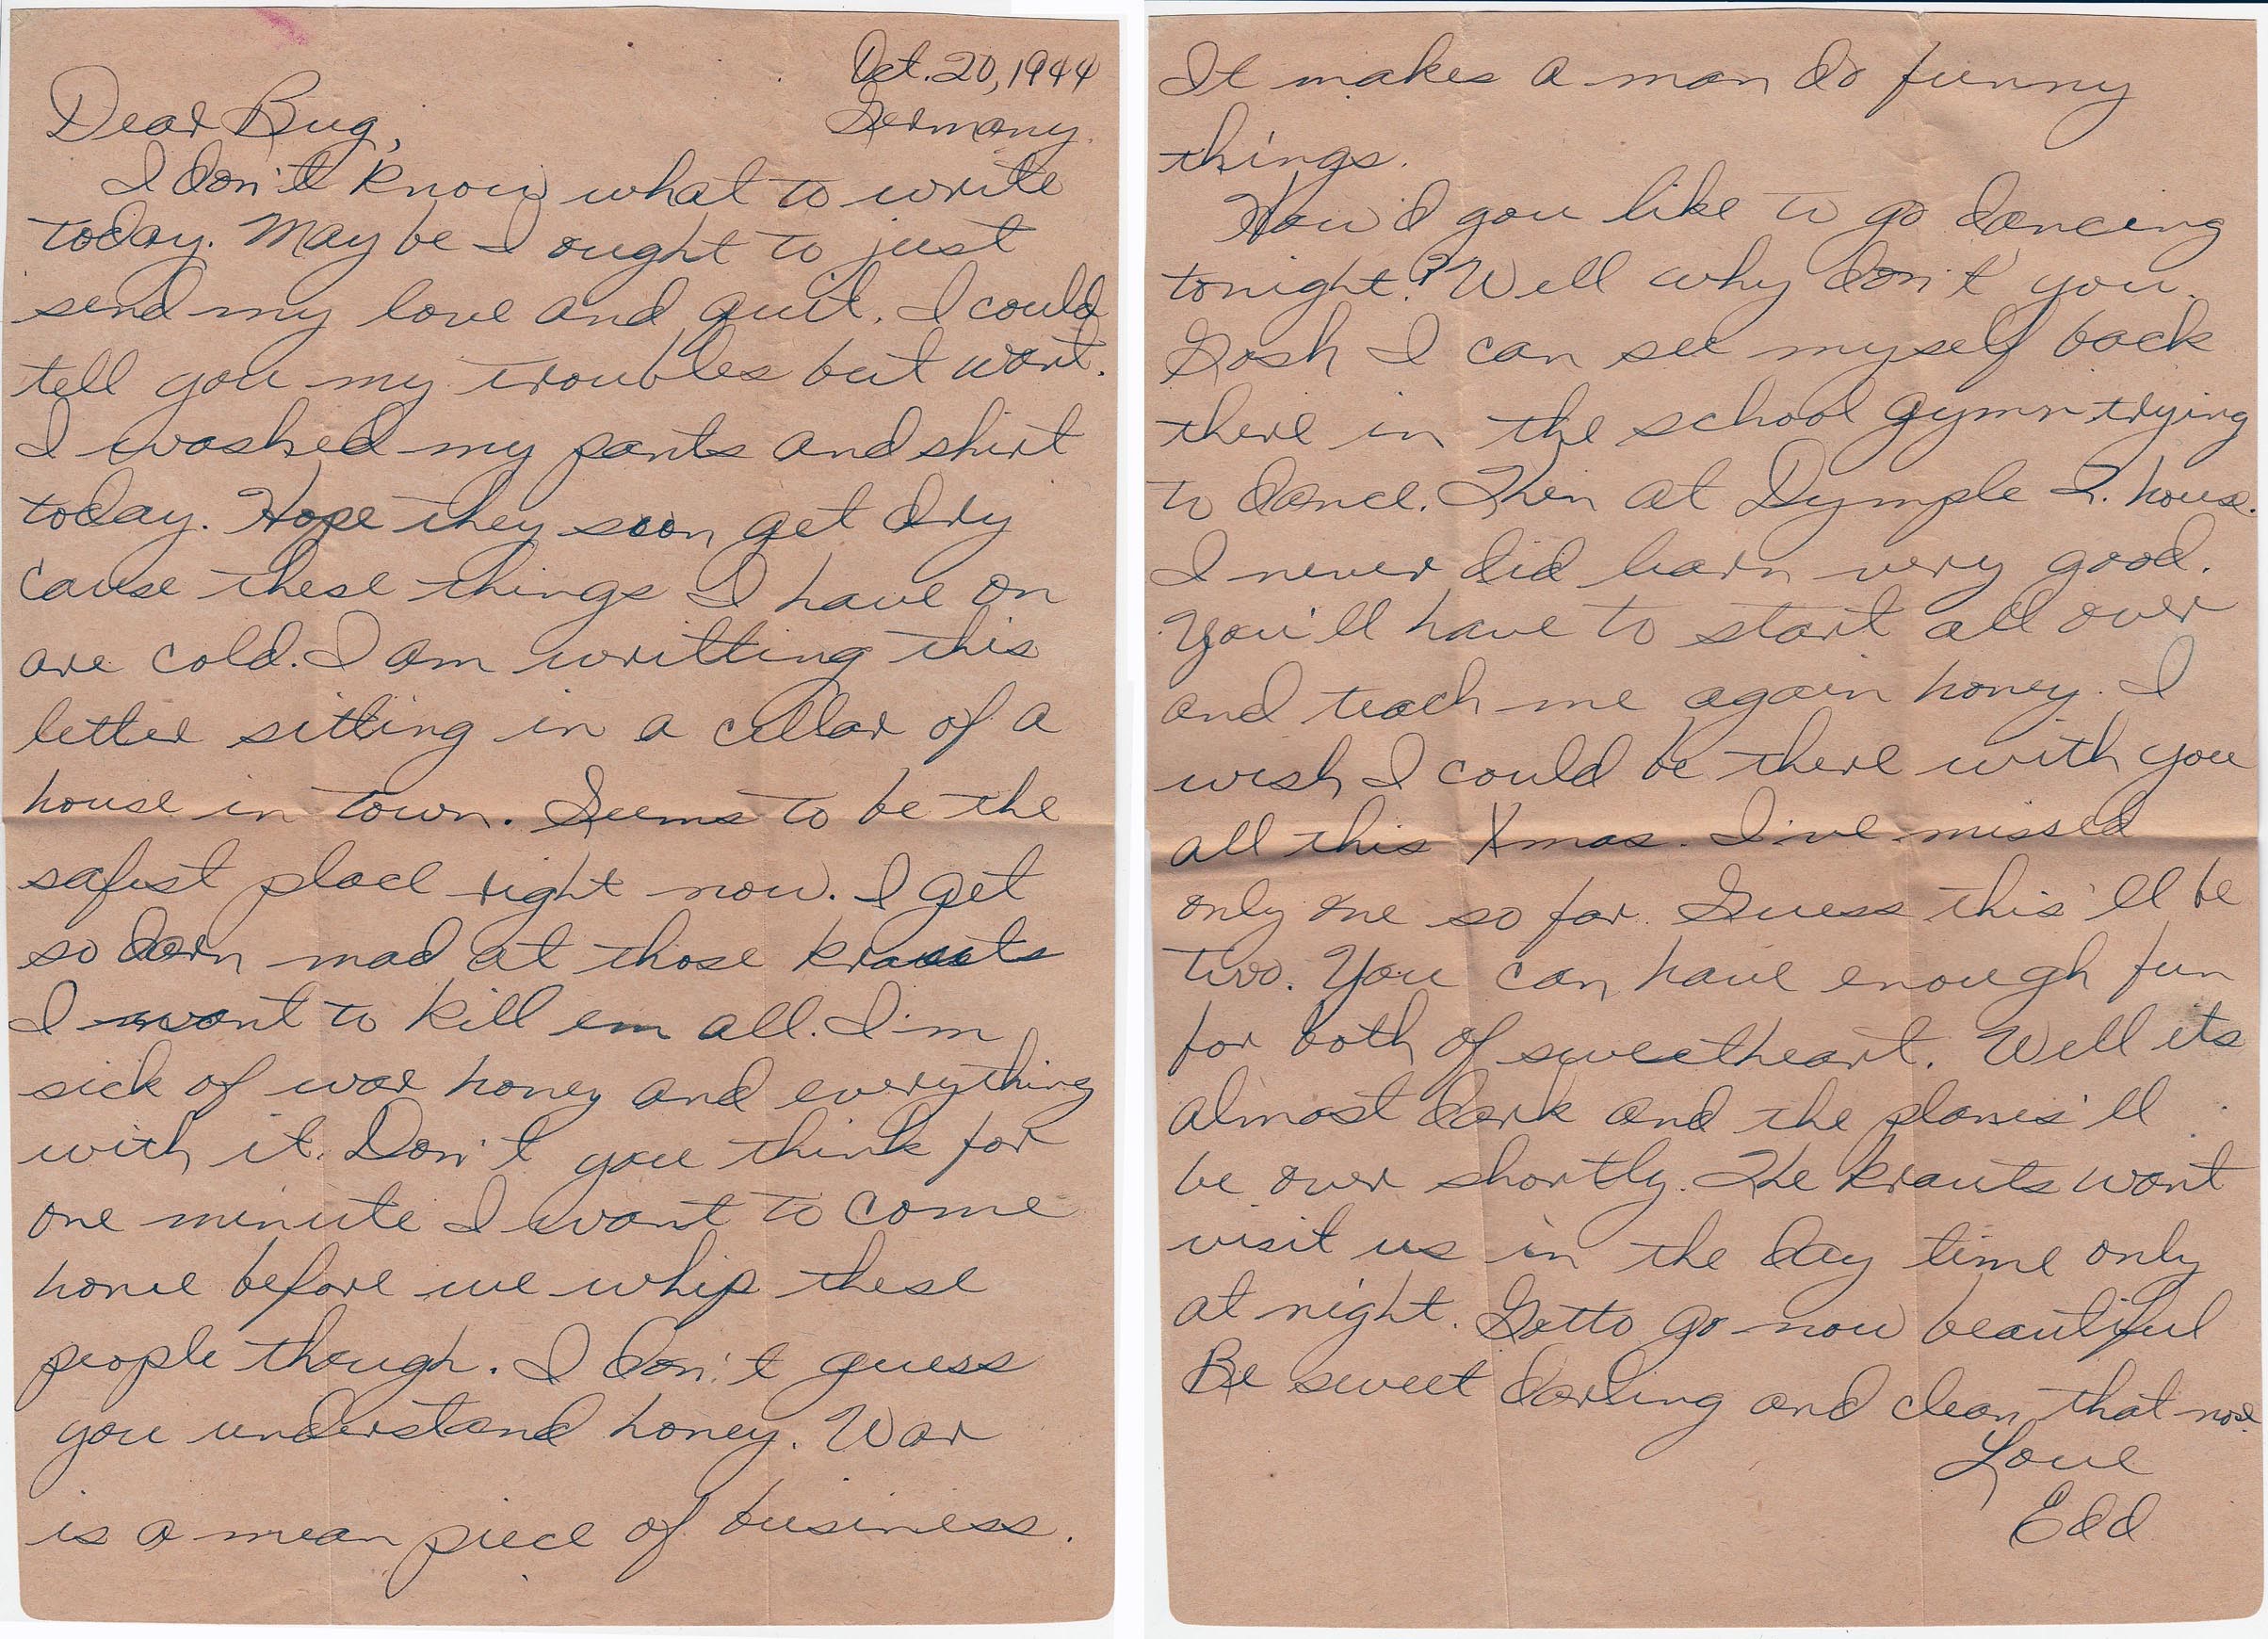 Oct. 20, 1944
Germany.
Dear Bug,
I don't know what to write
today. May be I ought to just
send my love and quit. I could
tell you my troubles but wont.
I washed my pants and shirt
today. Hope they soon get dry
cause these things I have on
are cold. I am writting this
letter sitting in a cellar of a
house in town. Seems to be the
safest place right now. I get
so darn mad at those krauts
I want to kill em all. I'm
sick of war honey and everything
with it. Don't you think for
one minute I want to come
home before we whip these
people though. I don't guess
you understand honey. War
is a mean piece of business.
It makes a man do funny
things.
How'd you like to go dancing
tonight? Well why don't you.
Gosh I can see myself back
there in the school gymn trying
to dance. Then at Dymple I. house.
I never did learn very good.
You'll have to start all over
and teach me again honey. I
wish I could be there with you
all this Xmas. I've missed
only one so far. Guess this'll be
two. You can have enough fun
for both of sweetheart. Well its
almost dark and the planes'll
be over shortly. The krauts wont
visit us in the day time only
at night. Gotto go now beautiful
Be sweet darling and clean that nose.
Love
Edd